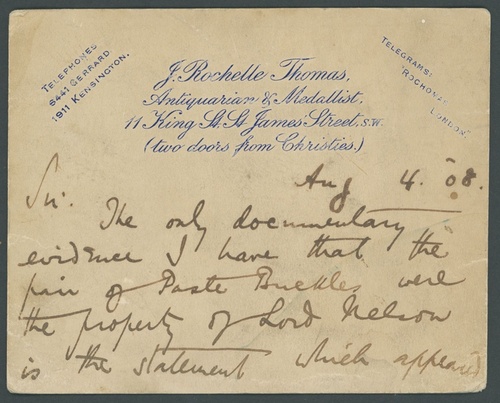 TELEPHONES
8441 GERRARD
1911 KENSINGTON.
J. Rochelle Thomas,
Antiquarian & Medallist,
11 King St. St. James' Street, S.W.
(two doors from Christies.)
TELEGRAMS:
"ROCHOMAS,
LONDON.
Aug 4. 08.
Sir. The only documentary
evidence I have that the
pair of Paste Buckles were
the property of Lord Nelson
is the statement which appeared